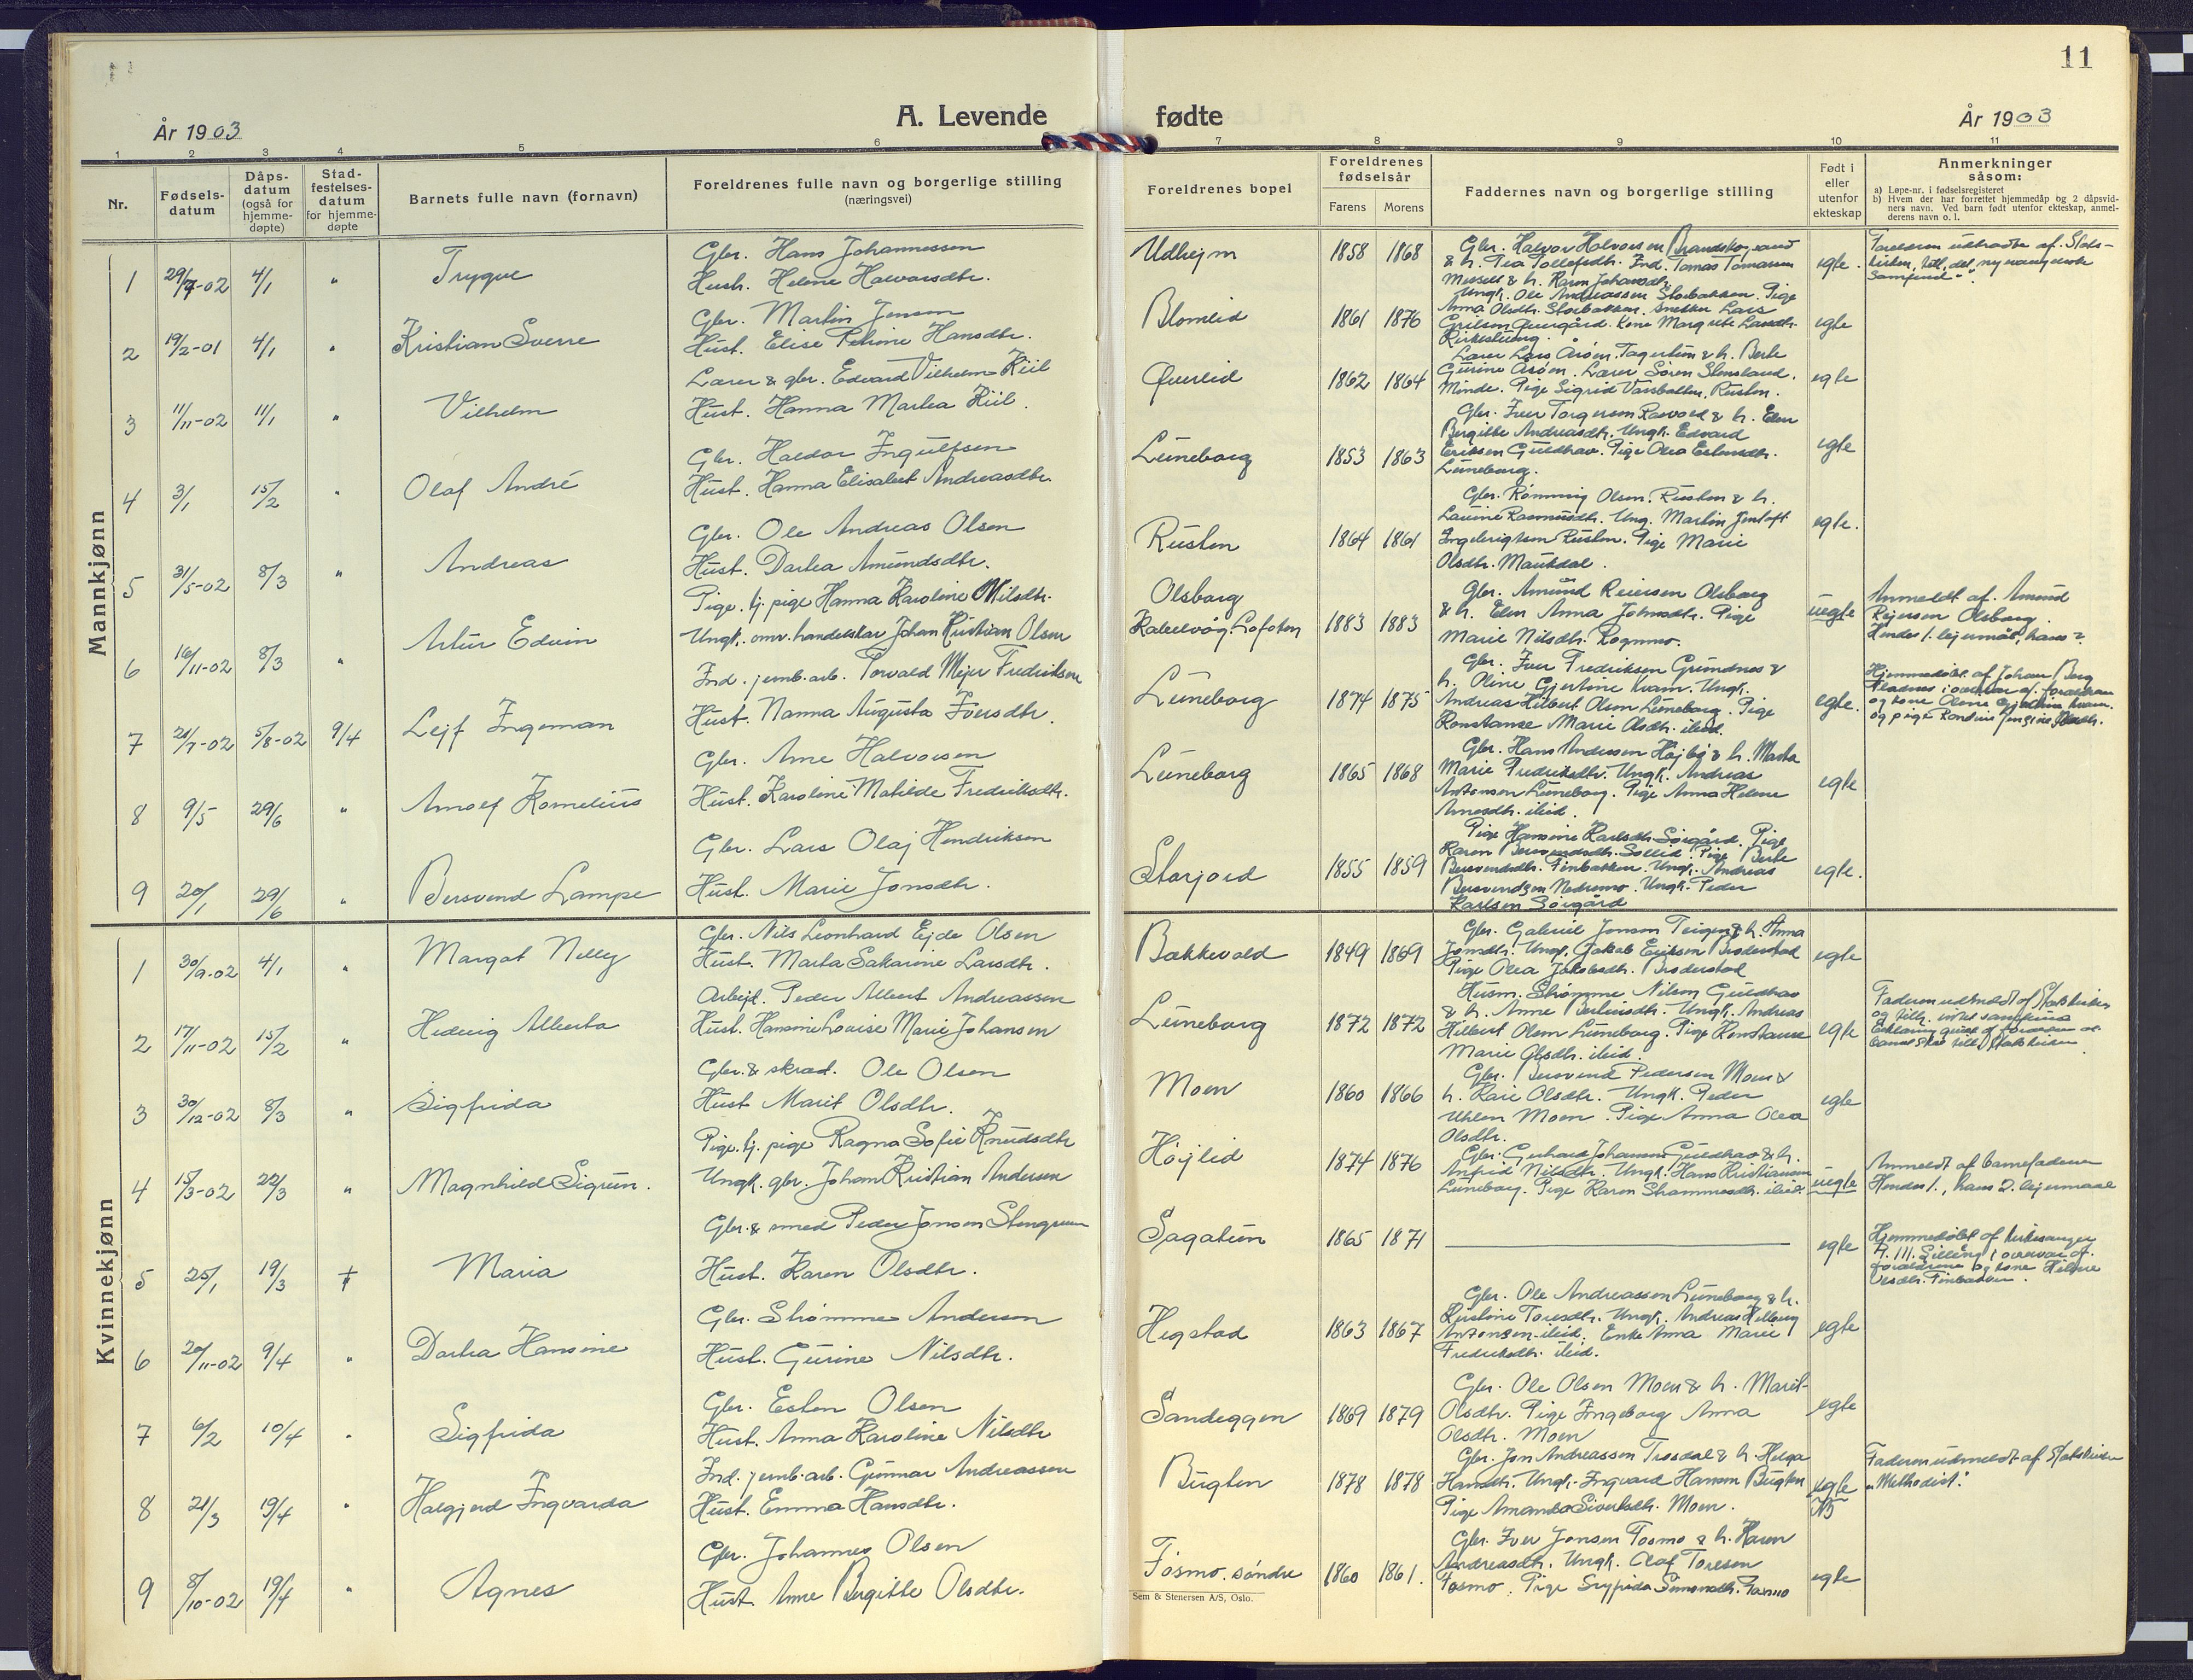 11
A. Levende fødte
År 1903
År 1903
1 2 3 4 5 6 7 8 9 10 11
Nr.
Fødsels-
datum
Dåps-
datum
(også for
hjemme-
døpte)
Stad-
festelses-
datum
for hjemme-
døpte
Barnets fulle navn (fornavn)
Foreldrenes fulle navn og borgerlige stilling
(næringsvei)
Foreldrenes bopel
Foreldrenes
fødselsår
Farens Morens
Faddernes navn og borgerlige stilling
Født i
eller
utenfor
ekteskap
Anmerkninger
såsom:
a) Løpe-nr. i fødselsregisteret
b) Hvem der har forrettet hjemmedåp og 2 dåpsvid-
ners navn. Ved barn født utenfor ekteskap, anmel-
derens navn o. l.
Mannkjønn
1 29/7-02 4/1 " Trygve
Gbr. Hans Johannessen
Hust. Helene Halvorsdtr.
Udhejm 1858 1868
Gbr. Halvor Halvorsen
& h. Pia Tollefsdtr. Ind. Tomas Tomassen
Messelt & h. Karen Johansdtr.
egte.
2 19/2-01 4/1 " Kristian Sverre
Gbr. Martin Jensen
Hust. Elise Petrine Hansdtr.
Blomlid 1861 1876
Ungk. Ole Andreassen Storbakken. Pige
Anna Olsdtr. Storbakken. Snekker Lars
egte
3 11/11-02 11/1 " Vilhelm
Lærer & gbr. Edvard Vilhelm Kiil
Hust. Hanna Marta Kiil.
Øverlid 1862 1864
Lærer Lars Åsøen. Fagertun & h. Berte
Gurine Åsøen. Lærer Søren Stensland.
Minde. Pige Sigrid Rusten.
egte
4 3/1 15/2 " Olaf André
Gbr. Haldor Ingulfsen
Hust. Hanna Elisabet Andreasdtr.
Luneborg 1853 1863
Gbr. Iver Torgersen & h. Elen
Bergitte Andreasdtr. Ungk. Edvard
Eriksen Guldhav. Pige Olea Estensdtr.
Luneborg.
egte
5 31/5-02 8/3 " Andreas
Gbr. Ole Andreas Olsen
Hust. Dartea Amundsdtr.
Rusten 1864 1861
Gbr. Rønning Olsen. Rusten & h.
Laurine Rasmusdtr. Ung. Martin Jentoft
Ingebrigtsen Rusten. Pige Marie
Olsdtr. Maukdal.
egte.
6 16/11-02 8/3 " Artur Edvin
Pige. tj. pige Hanna Karoline Nilsdtr.
Ungk. omr. handelskar Johan Kristian Olsen
Olsborg
Kabelvåg Lofoten 1883 1883
Gbr. Amund Reiersen Olsborg
& h. Elen Anna Johnsdtr. Pige
Marie Nilsdtr. Rognmo.
uegte
Anmeldt af. Amund
Rejersen Olsborg.
Hendes 1. lejermål, hans 2
7 21/7-02 5/8-02 9/4 Lejf Ingeman
Ind. jernb. arb. Torvald Mejer Fredriksen
Hust. Nanna Augusta Iversdtr.
Luneborg 1874 1875
Gbr. Iver Fredriksen Grundnes &
h. Oline Gjertine Kvam. Ungk.
Andreas Hilbert Olsen Luneborg. Pige
Konstanse Marie Olsdtr. ibid.
egte.
Hjemmedøbt af Johan Berg
8 9/5 29/6 " Arnolf Kornelius
Gbr. Arne Halvorsen
Hust. Karoline Matilde Fredriksdtr.
Luneborg 1865 1868
Gbr. Hans Andersen Højbø & h. Marta
Marie Fredriksdtr. Ungk. Andreas
Antonsen Luneborg. Pige Anna Helene
Arnesdtr. ibid.
egte
9 20/1 29/6 " Bersvend Lampe
Gbr. Lars Olaj Hendriksen
Hust. Marie Jonsdtr.
Storjord 1855 1859
Pige Hansine Karlsdtr. Søigård. Pige
Karen Bersvendsdtr. Sollid. Pige Berte
Bersvendsdtr. Finbakken. Ungk. Andreas
Bersvendsen Nedremo. Ungk. Peder
Karlsen Søigård
egte.
Kvinnekjønn
1 30/9-02 4/1 " Margot Nelly
Gbr. Nils Leonhard Ejde Olsen
Hust. Marta Sakarine Larsdtr.
Bakkevold 1849 1869
Gbr. Gabriel Jonsen Teigen & h. Anna
Jonsdtr. Ungk. Jakob Eriksen Broderstad
Pige Olea Jakobsdtr. Broderstad
egte
2 17/11-02 15/2 " Hedevig Alberta
Arbejd. Peder Albert Andreassen
Hust. Hansine Lovise Marie Johansen
Luneborg 1872 1872
Husm. Strømme Nilsen Guldhav
& h. Anne Berlinsdtr. Ungk. Andreas
Hilbert Olsen Luneborg. Pige Konstanse
Marie Olsdtr. ibid.
egte
Faderen udmeldt af Statskirken
3 30/12-02 8/3 " Sigfrida
Gbr. & skræd. Ole Olsen
Hust Marit Olsdtr.
Moen 1860 1866
Gbr. Bersvend Pedersen Moen &
h. Kari Olsdtr. Ungk. Peder
Uhlen Moen. Pige Anna Olea
Olsdtr.
egte
4 15/3-02 22/3 " Magnhild Sigrun.
Pige. tj. pige Ragna Sofie Knudsdtr
Ungk. gbr. Johan Kristian Andersen
Højlid 1874 1876
Gbr. Gerhard Johansen Guldhav & h.
Anfrid Nilsdtr. Ungk. Hans Kristiansen
Luneborg. Pige Karen Strømmesdtr. ibid.
uegte
Anmeldt af barnefaderen
Hendes 1., hans 2. lejermaal
5 25/1 19/3 † Maria
Gbr. & smed Peder Jonsen Stengruen
Hust. Karen Olsdtr.
Sagatun 1865 1871
egte
Hjemmedøbt af kirkesanger
6 20/11-02 9/4 " Dortea Hansine
Gbr. Strømme Andersen
Hust. Gurine Nilsdtr.
Hegstad 1863 1867
Gbr. Ole Andreassen Luneborg & h.
Kristine Toresdtr. Ungk. Andreas
Antonsen ibid. Enke Anna Marie
Fredriksdtr. ibid.
egte
7 6/2 10/4 " Sigfrida
Gbr. Esten Olsen
Hust. Anna Karoline Nilsdtr
Sandeggen 1869 1879
Gbr. Ole Olsen Moen & h. Marit
Olsdtr. Pige Ingeborg Anna
Olsdtr. Moen
egte
8 21/3 19/4 " Halgjerd Ingvarda
Ind. jernb. arb. Gunnar Andreassen
Hust. Emma Hansdtr.
Bugten 1878 1878
Gbr. Jon Andreassen Trosdal & h. Helga
Hansdtr. Ungk. Ingvard Hansen Bugten
Pige Amanda Sivertsdtr. Moen.
egte
Faderen udmeldt af Statskirken
"Methodist".
9 8/10-02 19/4 " Agnes
Gbr. Johannes Olsen
Hust. Anne Bergitte Olsdtr.
Fosmo. søndre 1860 1861.
Gbr. Iver Jonsen Fosmo & h. Karen
Andreasdtr. Ungk. Olaf Toresen
Fosmo. Pige Sigfrida Simonsdtr. Fosmo
egte
Sem & Stenersen A/S, Oslo.